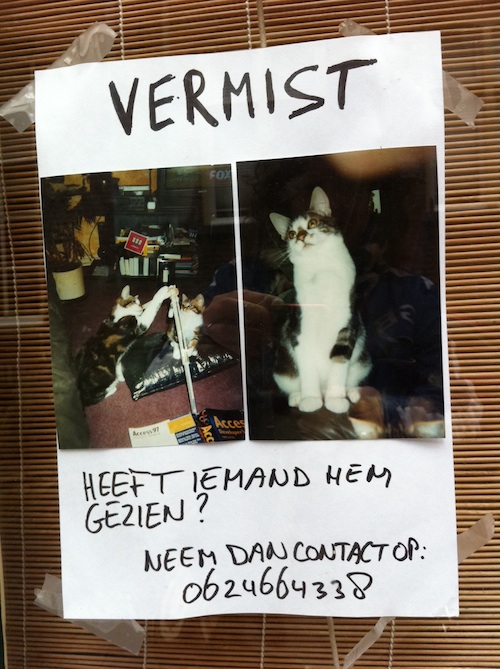 VERMIST
FOX
Access 97
Acces
HEEFT IEMAND HEM
GEZIEN?
NEEM DAN CONTACT OP:
0624664338